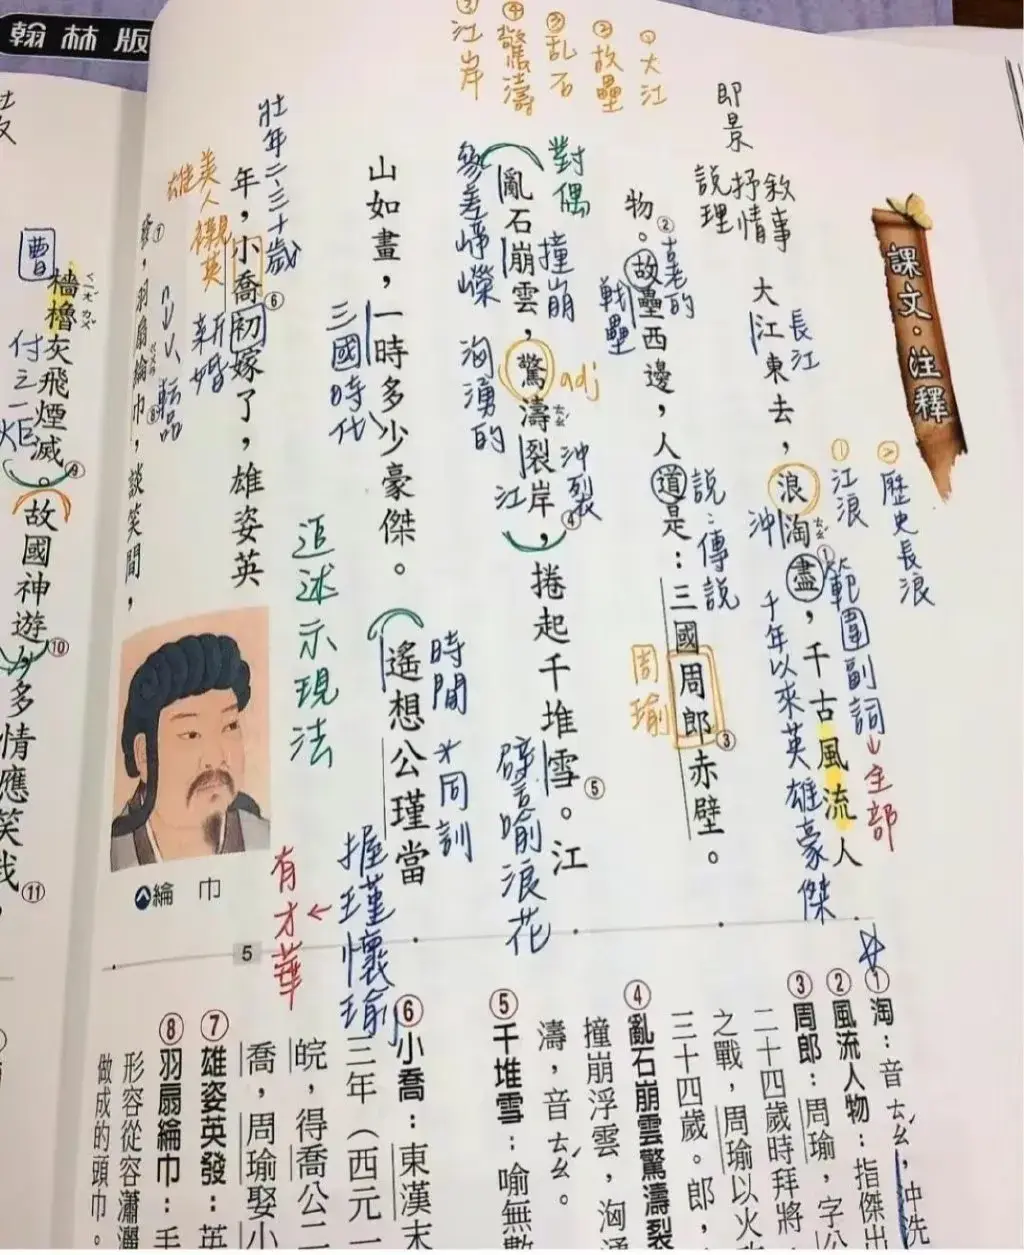 翰林版
課文．注釋
②歷史長浪
①江浪
範圍副詞→全部
千年以來英雄豪傑
長江
沖
大江東去，浪淘盡①，千古風流人
敘事
抒情
說理
即景
說：傳說
老的
戰壘
周瑜
物②。故壘西邊，人道是：三國周郎③赤壁。
①大江
②故壘
③乱石
④驚濤
⑤江岸
對偶
撞崩
adj
沖裂
江
參差崢嶸
洶湧的
譬喻浪花
亂石崩雲，驚濤裂岸④，捲起千堆雪⑤。江
時間
*同訓
握瑾懷瑜
→有才華
三國時代
山如畫，一時多少豪傑。遙想公瑾當
追述示現法
壯年二、三十歲
美人襯英雄
新婚
年，小喬⑥初嫁了，雄姿英
轉品
發⑦，羽扇綸巾⑧，談笑間，
綸巾
曹
付之一炬
檣櫓灰飛煙滅⑨。故國神遊⑩，多情應笑我⑪，
5
①淘：音ㄊㄠˊ，沖洗
②風流人物：指傑出
③周郎：周瑜，字公
二十四歲時拜將
之戰，周瑜以火攻
三十四歲。郎，
④亂石崩雲驚濤裂
撞崩浮雲，洶湧
濤，音ㄊㄠˊ。
⑤千堆雪：喻無數
⑥小喬：東漢末
三年（西元一
皖，得喬公二
喬，周瑜娶小
⑦雄姿英發：英
⑧羽扇綸巾：手
形容從容瀟灑
做成的頭巾。